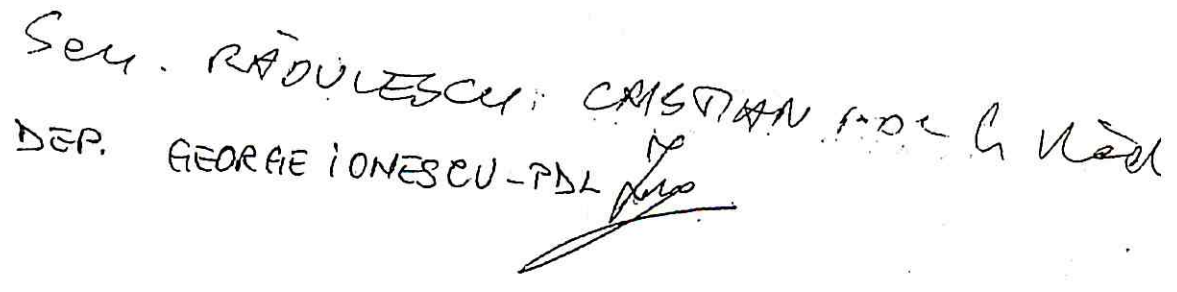 Sen. RĂDULESCU CRISTIAN PDL
DEP. GEORGE IONESCU-PDL